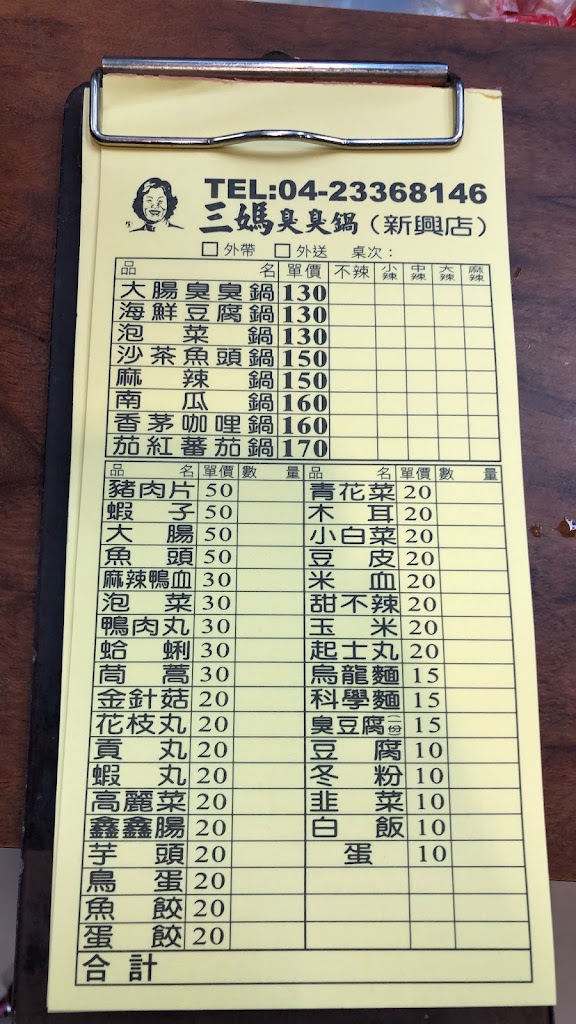 TEL:04-23368146
三媽臭臭鍋（新興店）
□外帶 □外送 桌次：
品名 單價 不辣 小辣 中辣 大辣 麻辣
大腸臭臭鍋 130
海鮮豆腐鍋 130
泡菜鍋 130
沙茶魚頭鍋 150
麻辣鍋 150
南瓜鍋 160
香茅咖哩鍋 160
茄紅蕃茄鍋 170
品名 單價 數量 品名 單價 數量
豬肉片 50 青花菜 20
蝦子 50 木耳 20
大腸 50 小白菜 20
魚頭 50 豆皮 20
麻辣鴨血 30 米血 20
泡菜 30 甜不辣 20
鴨肉丸 30 玉米 20
蛤蜊 30 起士丸 20
茼蒿 30 烏龍麵 15
金針菇 20 科學麵 15
花枝丸 20 臭豆腐(一份) 15
貢丸 20 豆腐 10
蝦丸 20 冬粉 10
高麗菜 20 韭菜 10
鑫鑫腸 20 白飯 10
芋頭 20 蛋 10
鳥蛋 20
魚餃 20
蛋餃 20
合計